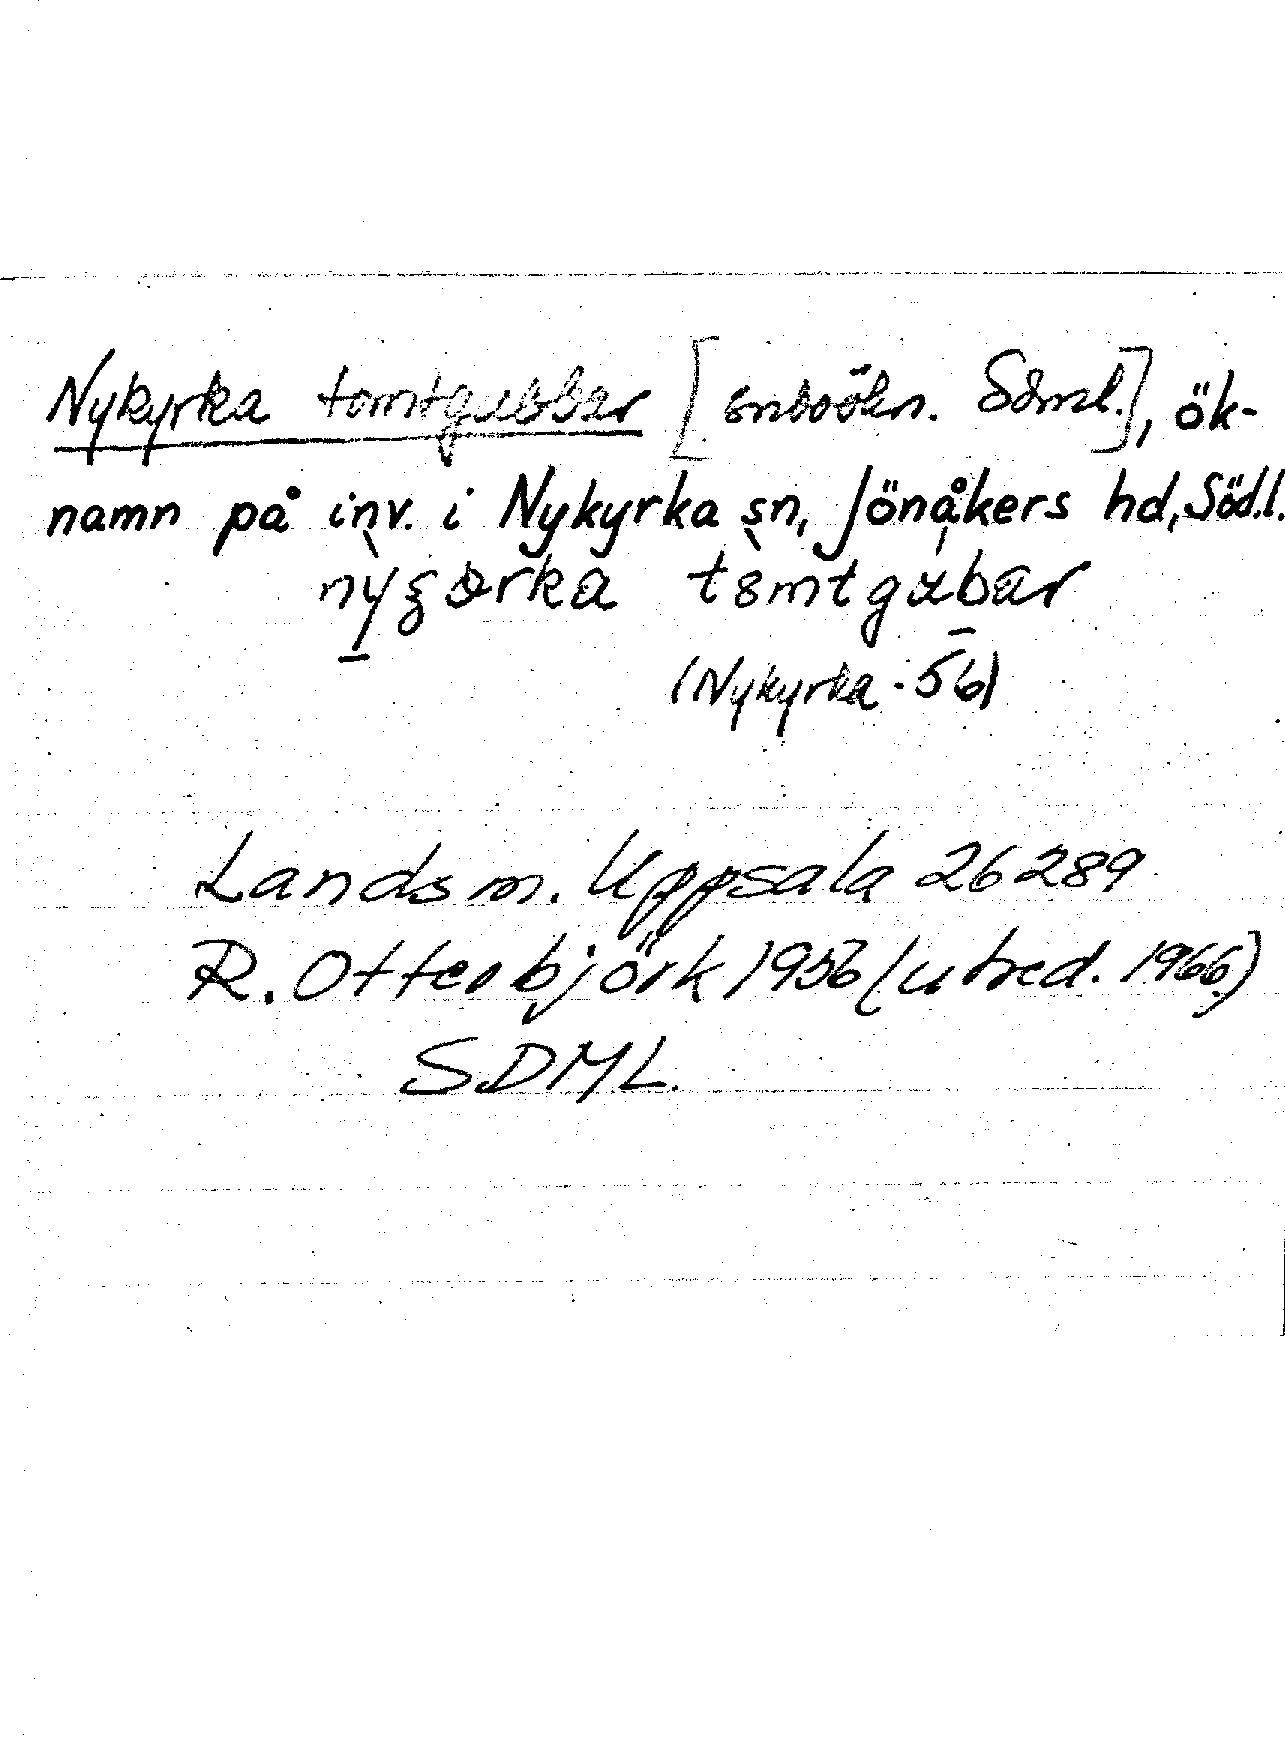 Nykyrka tomtgubbar [snboökn. Söml.], ök-
namn på inv. i Nykyrka sn, Jönåkers hd, Södl.
(Nykyrka. 56)
Landsm. Uppsala 26289
R. Otterbjörk 1956 (utred. 1966)
SDML.